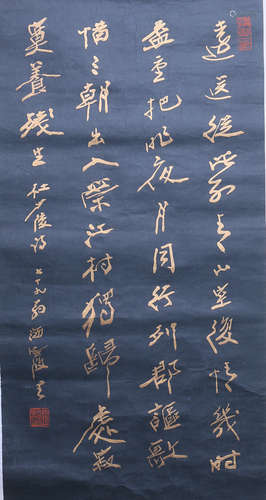 遠送從此別青山空復情幾時
盃重把昨夜月同行列郡謳歌
惜三朝出入榮江村獨歸處寂
寞養殘生 杜少陵詩 七十九翁